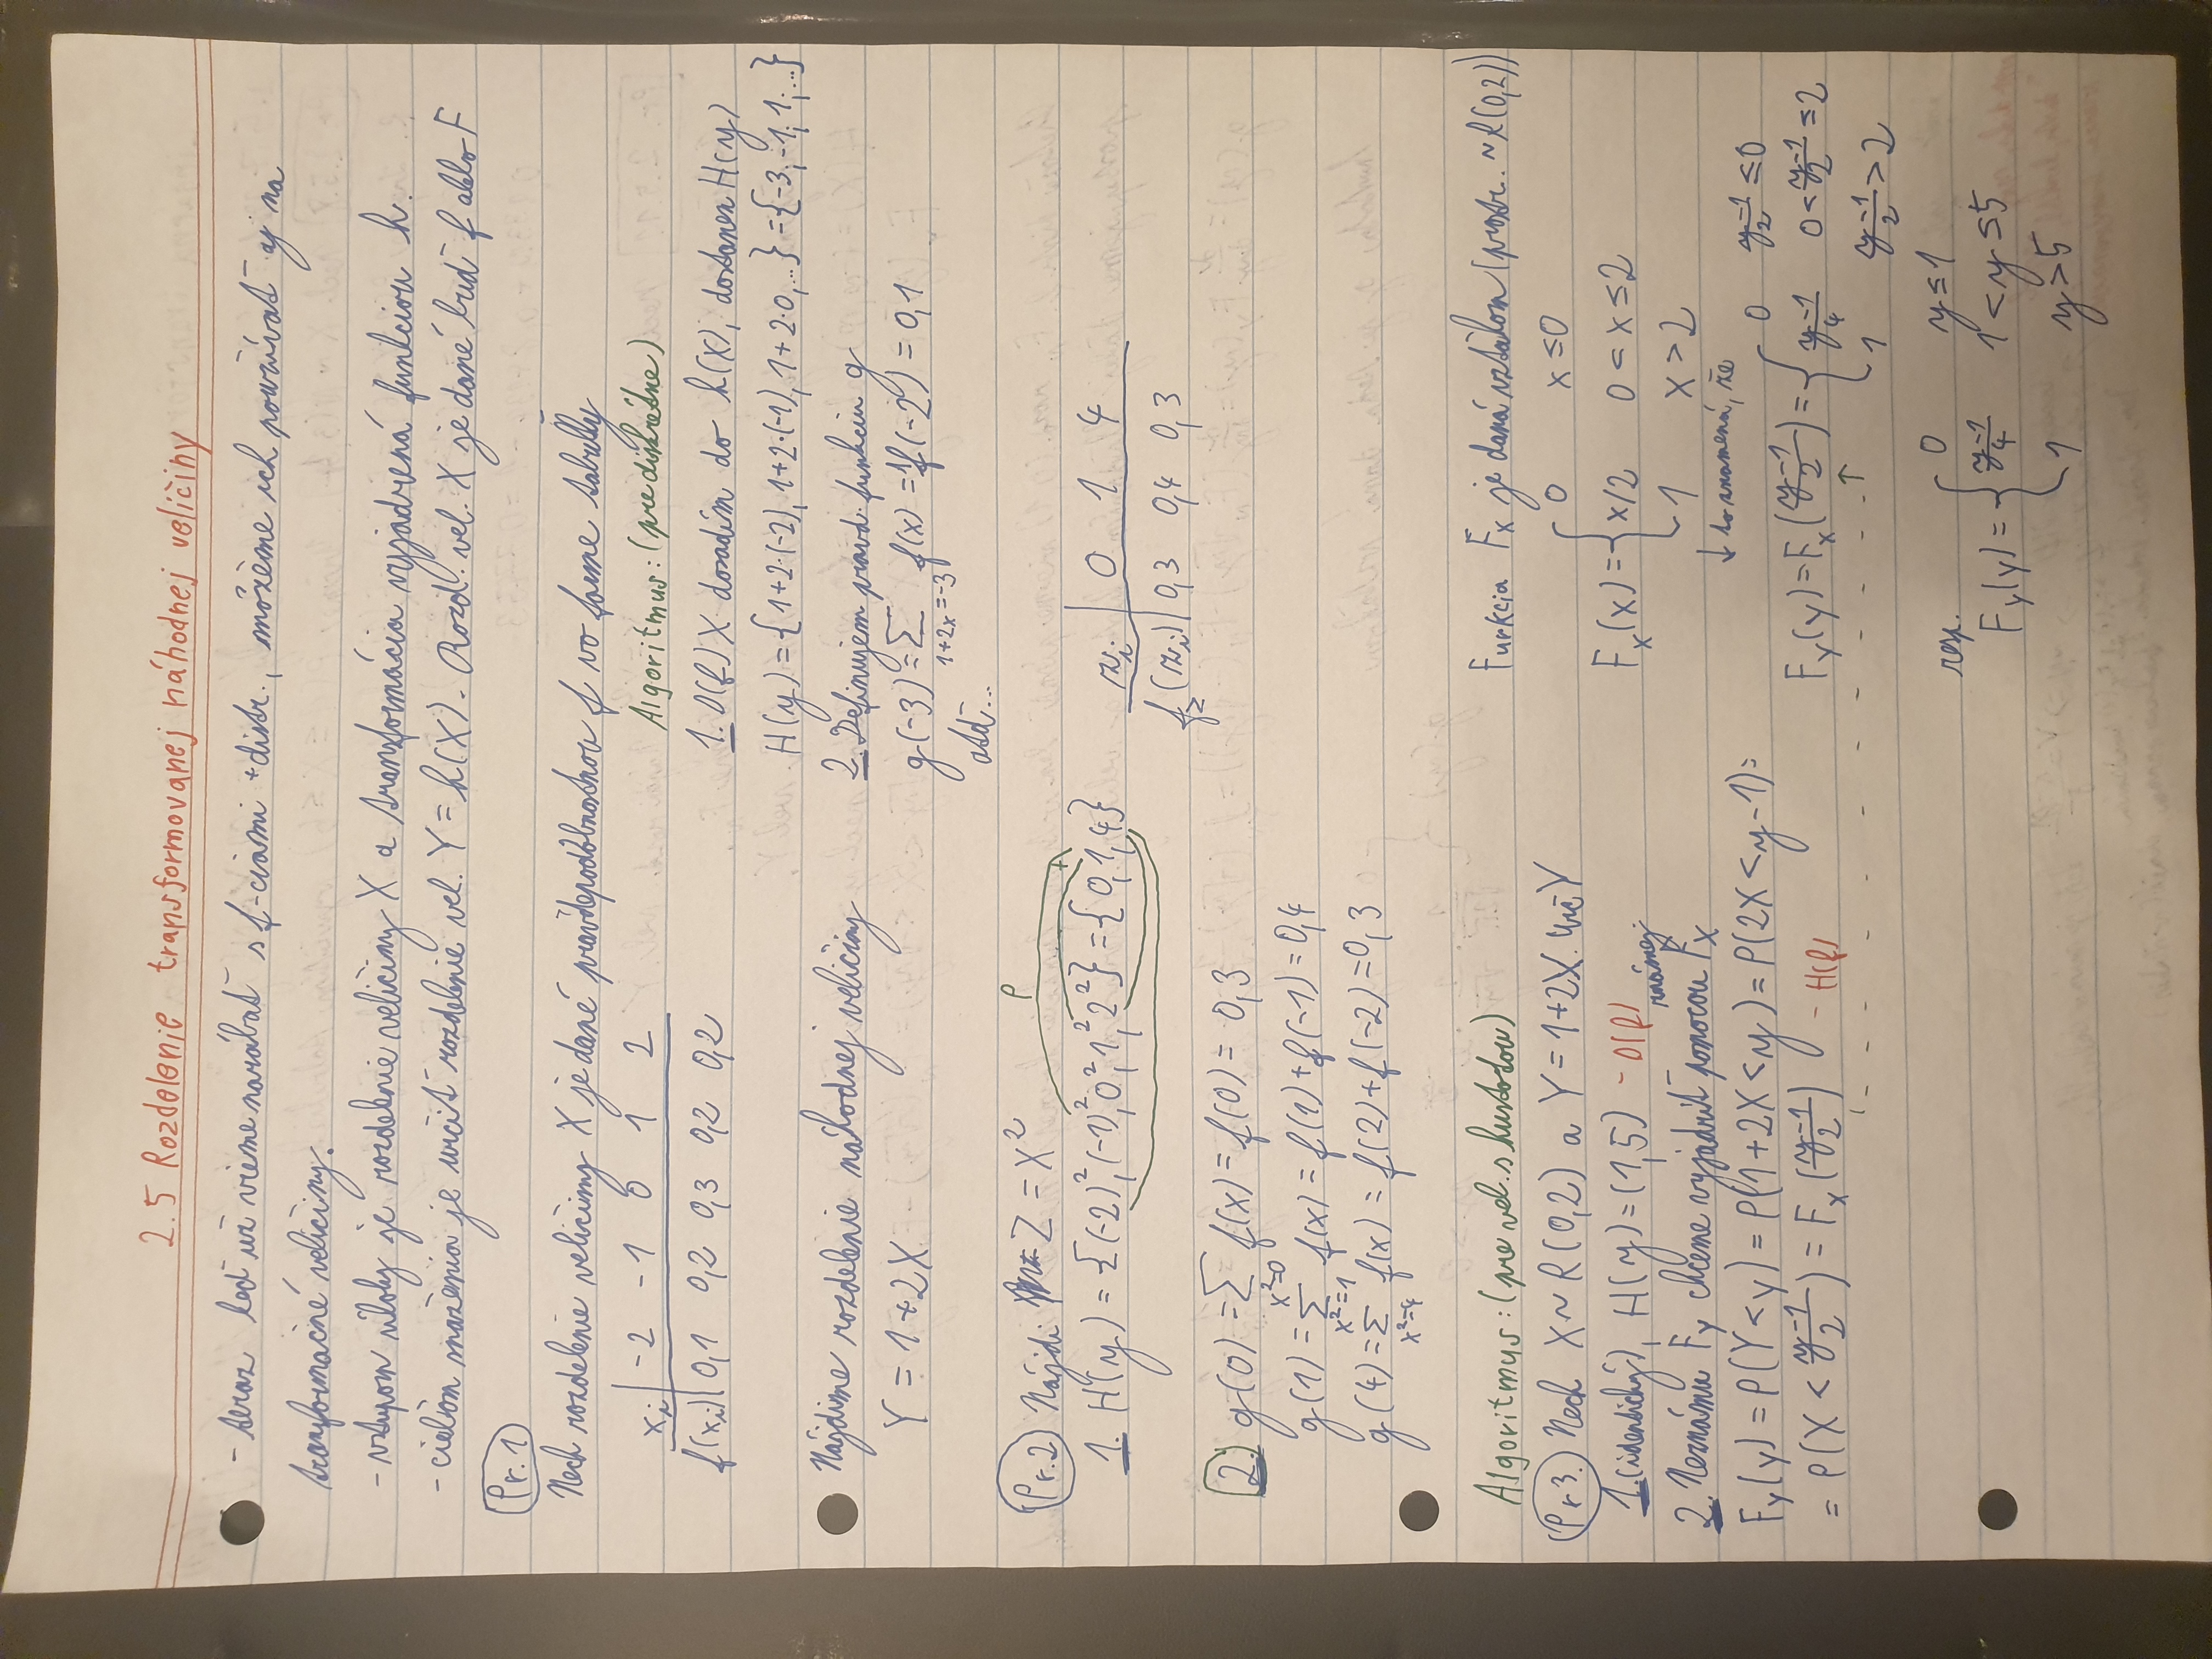 2.5 Rozdelenie transformovanej náhodnej veličiny
- teraz keď už vieme narábať s f-ciami + distr., môžeme ich používať aj na
transformačné veličiny.
- vstupom úlohy je rozdelenie veličiny X a transformácia vyjadrená funkciou h.
- cieľom snaženia je určiť rozdelenie vel. Y = h(X). Rozd. vel. X je dané buď f alebo F
Pr. 1
Nech rozdelenie veličiny X je dané pravdepodobnostnou f vo forme tabuľky
x_i | -2 -1 0 1 2
f(x_i) | 0,1 0,2 0,3 0,2 0,2
Nájdime rozdelenie náhodnej veličiny
Y = 1+2X
Algoritmus: (pre diskrétne)
1. D(f) X dosadím do h(X), dostanem H(y)
H(y) = {1+2·(-2), 1+2·(-1), 1+2·0, ..} = {-3; -1; 1; ...}
2. Definujem pravd. funkciu g
g(-3) = Σ_{1+2x=-3} f(x) = f(-2) = 0,1
atď...
Pr. 2 Nájdi Z = X²
1. H(y) = {(-2)², (-1)², 0², 1², 2²} = {0, 1, 4}
P
+
z_i | 0 1 4
f_z(z_i) | 0,3 0,4 0,3
2. g(0) = Σ_{x²=0} f(x) = f(0) = 0,3
g(1) = Σ_{x²=1} f(x) = f(1) + f(-1) = 0,4
g(4) = Σ_{x²=4} f(x) = f(2) + f(-2) = 0,3
Algoritmus: (pre vel. s hustotou)
Pr 3. Nech X ~ R(0,2) a Y = 1+2X. Urč Y
1. (identický), H(y) = (1,5) - D(f)
2. Neznámu F_Y chceme vyjadriť pomocou známej F_X
F_Y(y) = P(Y < y) = P(1+2X < y) = P(2X < y-1) =
= P(X < (y-1)/2) = F_X((y-1)/2) - H(f)
Funkcia F_X je daná vzťahom (prostr. ~ R(0,2))
F_X(x) = { 0 x ≤ 0
x/2 0 < x ≤ 2
1 x > 2
↓ to znamená, že
F_Y(y) = F_X((y-1)/2) = { 0 (y-1)/2 ≤ 0
(y-1)/4 0 < (y-1)/2 ≤ 2
1 (y-1)/2 > 2
↑
resp.
F_Y(y) = { 0 y ≤ 1
(y-1)/4 1 < y ≤ 5
1 y > 5